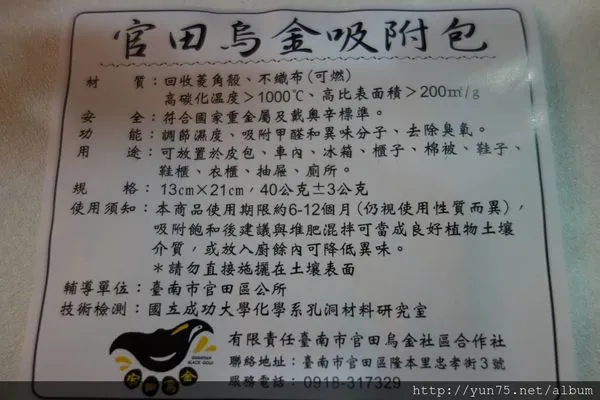 官田烏金吸附包
材　質：回收菱角殼、不織布(可燃)
高碳化溫度>1000℃、高比表面積>200㎡/g
安　全：符合國家重金屬及戴奧辛標準。
功　能：調節濕度、吸附甲醛和異味分子、去除臭氧。
用　途：可放置於皮包、車內、冰箱、櫃子、棉被、鞋子、
鞋櫃、衣櫃、抽屜、廁所。
規　格：13cm×21cm，40公克±3公克
使用須知：本商品使用期限約6-12個月(仍視使用性質而異)，
吸附飽和後建議與堆肥混拌可當成良好植物土壤
介質，或放入廚餘內可降低異味。
＊請勿直接施擺在土壤表面
輔導單位：臺南市官田區公所
技術檢測：國立成功大學化學系孔洞材料研究室
GUANTIAN
BLACK GOLD
官田烏金
有限責任臺南市官田烏金社區合作社
聯絡地址：臺南市官田區隆本里忠孝街3號
服務電話：0918-317329
http://yun75.net/album